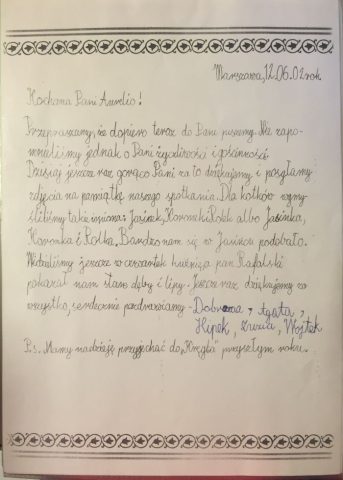 Warszawa, 12.06.02 rok.
Kochana Pani Aurelio!
Przepraszamy, że dopiero teraz do Pani piszemy. Nie zapo-
mnieliśmy jednak o Pani życzliwości i gościnności.
Dzisiaj jeszcze raz gorąco Pani za to dziękujemy i posyłamy
zdjęcia na pamiątkę naszego spotkania. Dla kotków wymy-
śliliśmy takie imiona: Jasiek, Rolek albo Jasinka,
i Rolka. Bardzo nam się w podobało.
Widzieliśmy jeszcze w czwartek pan Rafalski
pokazał nam stare dęby i lipy. Jeszcze raz dziękujemy za
wszystko, serdecznie pozdrawiamy - Dobrawa, Agata,
Hipek, Zuzia, Wojtek
Ps. Mamy nadzieję przyjechać do „Kręgla" w przyszłym roku.